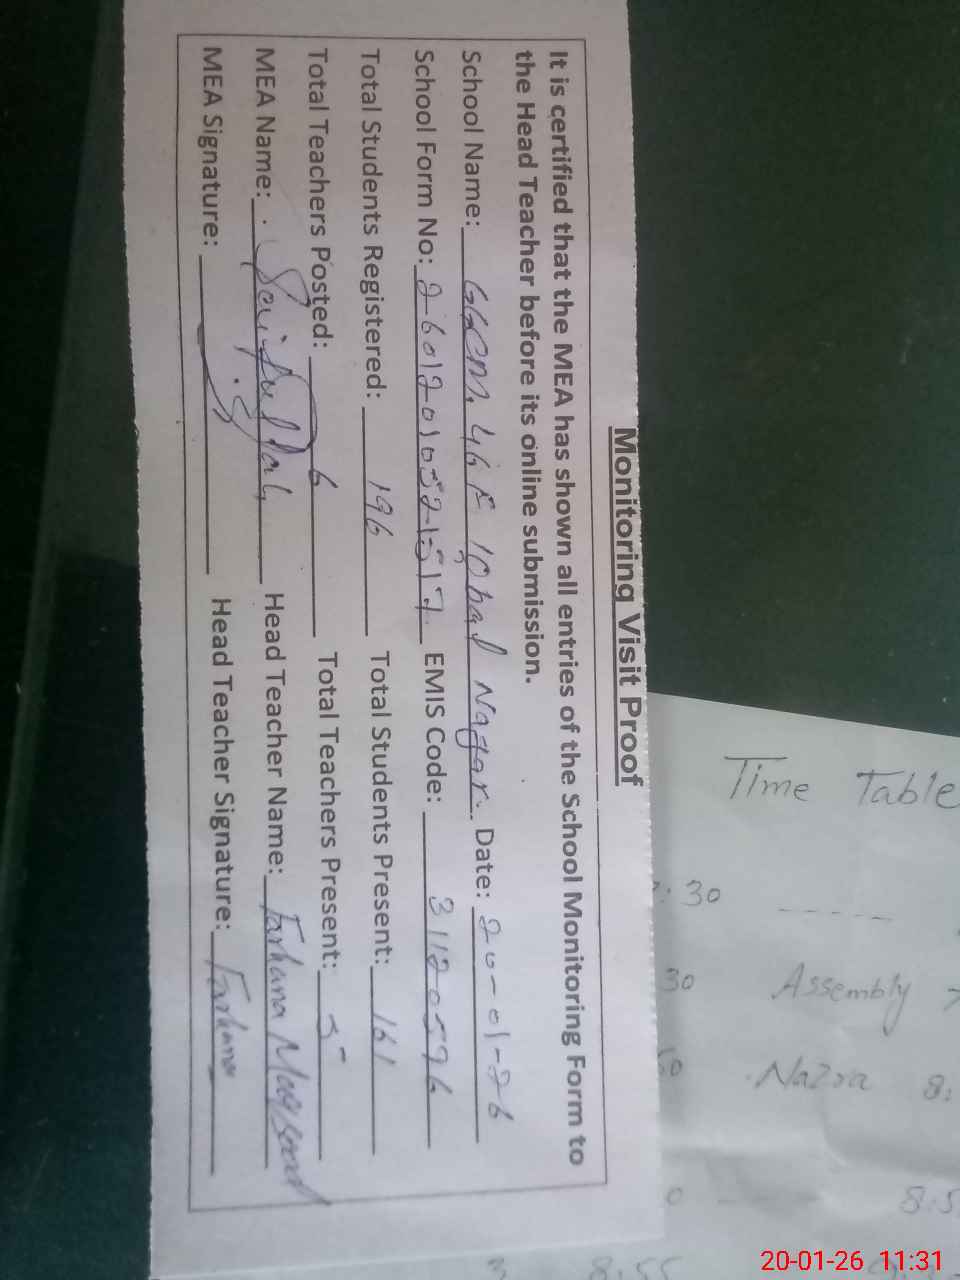 Monitoring Visit Proof
It is certified that the MEA has shown all entries of the School Monitoring Form to
the Head Teacher before its online submission.
School Name: 46 F Iqbal Nagar. Date: 20-01-26
School Form No: EMIS Code: 31120576
Total Students Registered: 196 Total Students Present: 161
Total Teachers Posted: 6 Total Teachers Present: 5
MEA Name: Head Teacher Name: Farhana Maqsood
MEA Signature: Head Teacher Signature: Farhana
Time Table
:30 -----
30 Assembly
Nazra 8:
0 8:5
8:55
20-01-26 11:31